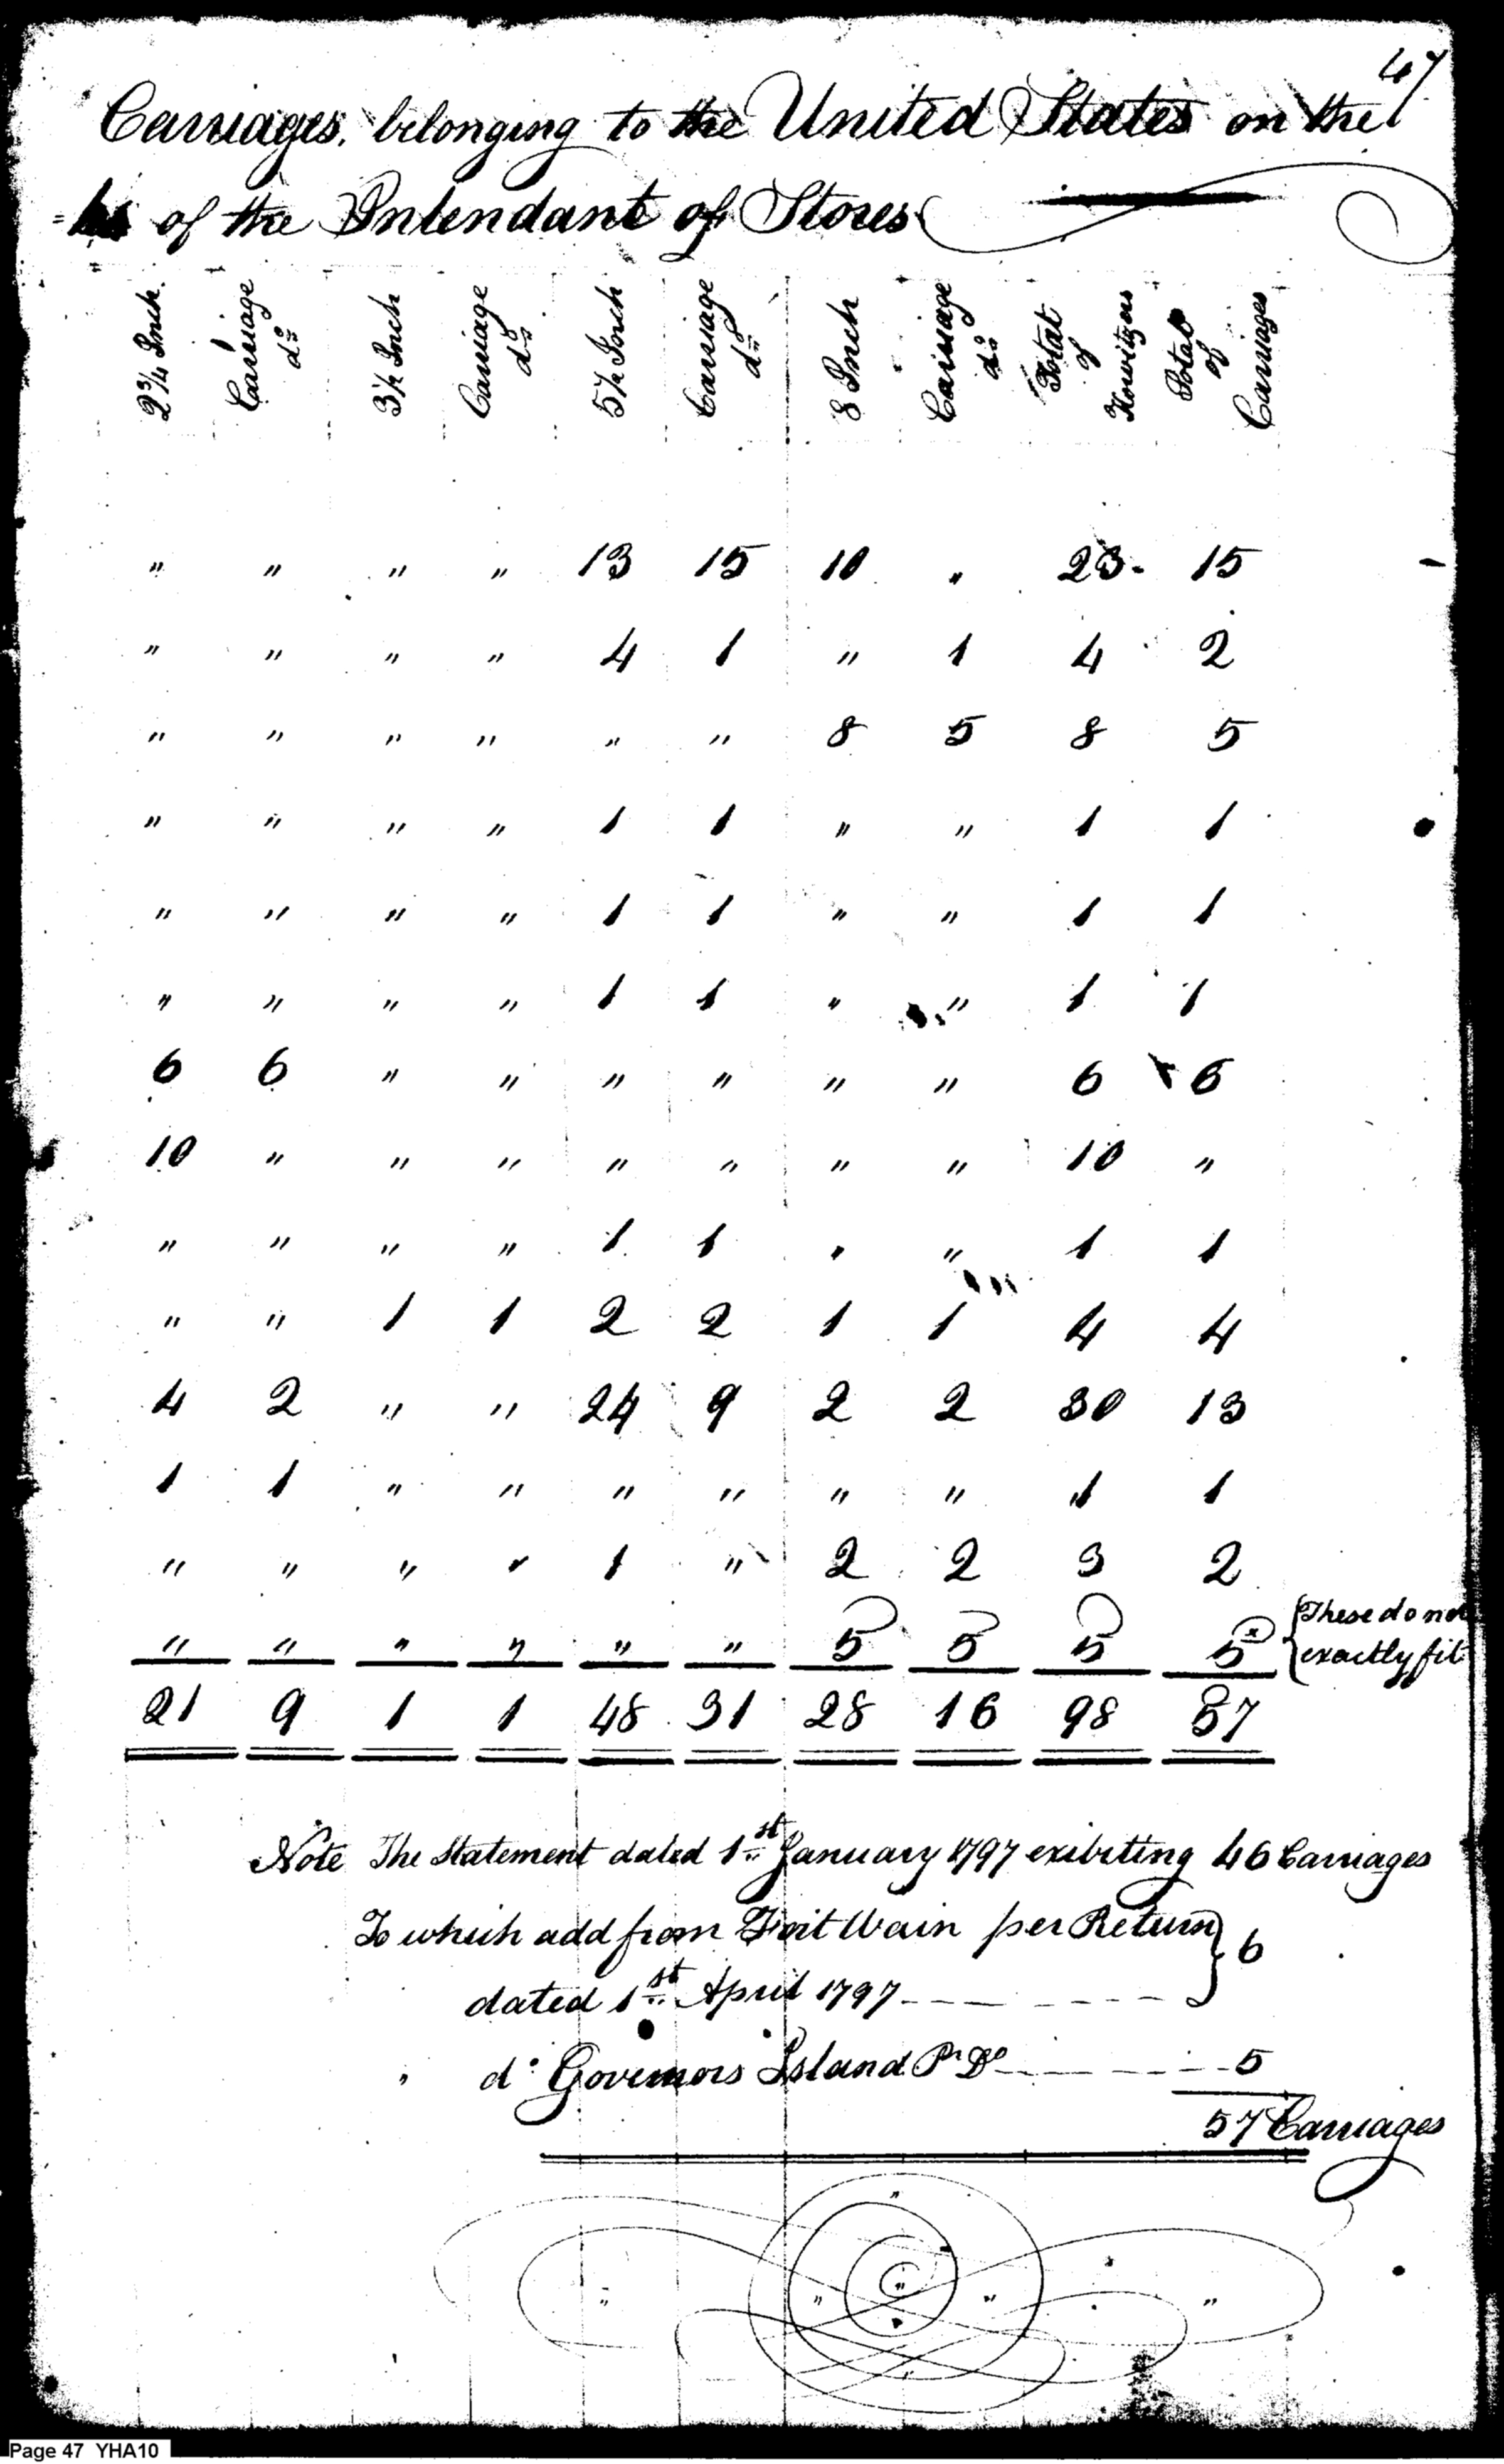 47
Carriages, belonging to the United States on the
of the Intendant of Stores
2¾ Inch. Carriage do 3½ Inch Carriage do 5½ Inch Carriage do 8 Inch Carriage do Total of Howitzers Total of Carriages
" " " " 13 15 10 " 23 15
" " " " 4 1 " 1 4 2
" " " " " " 8 5 8 5
" " " " 1 1 " " 1 1
" " " " 1 1 " " 1 1
" " " " 1 1 " " 1 1
6 6 " " " " " " 6 6
10 " " " " " " " 10 "
" " " " 1 1 " " 1 1
" " 1 1 2 2 1 1 4 4
4 2 " " 24 9 2 2 30 13
1 1 " " " " " " 1 1
" " " " 1 " 2 2 3 2
" " " " " " 5 5 5 5x { These do not
exactly fit
21 9 1 1 48 31 28 16 98 57
Note The Statement dated 1st January 1797 exibiting 46 Carriages
To which add from Fort Wain per Return } 6
dated 1st April 1797
" do Governors Island Pr Do 5
57 Carriages
Page 47 YHA10